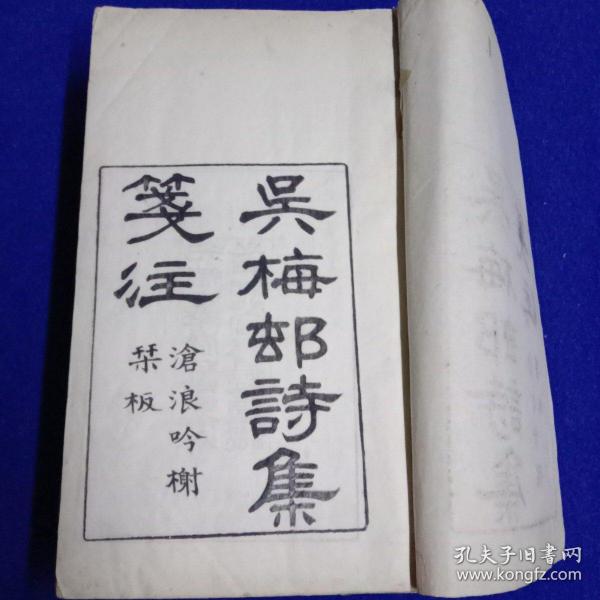 吳梅邨詩集
箋注
滄浪吟榭
栞板
孔夫子旧书网
www.kongfz.com